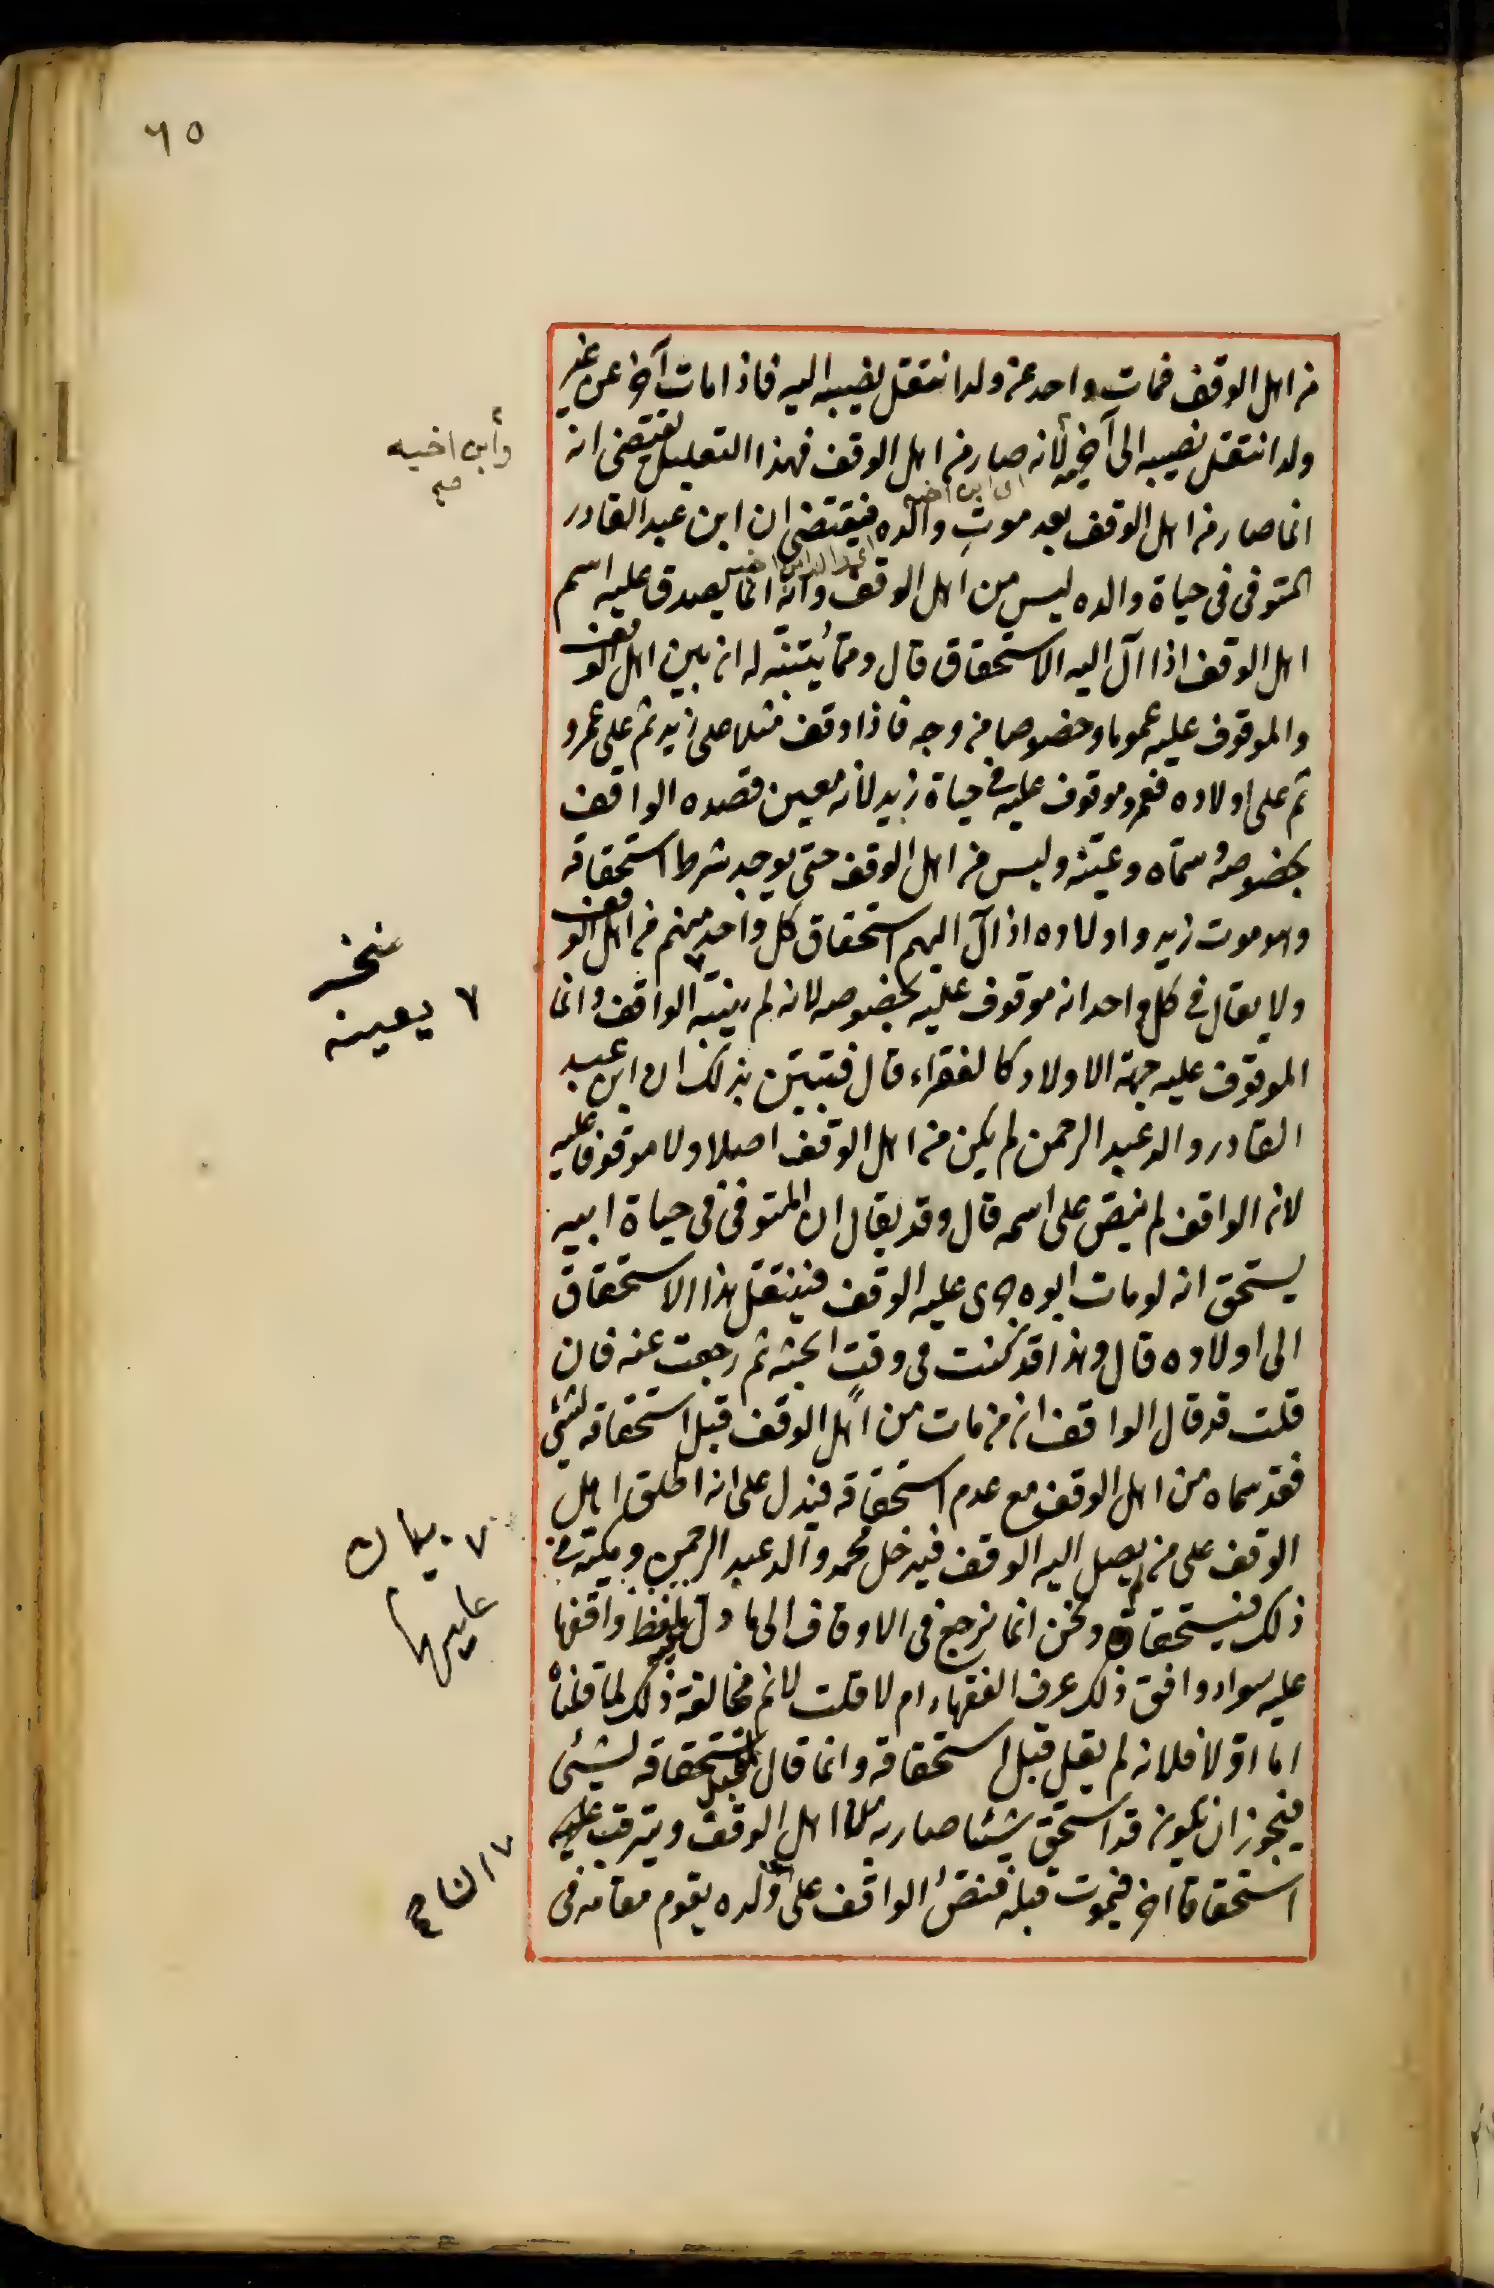 ٦٥
من اهل الوقف فمات واحد عن ولد انتقل نصيبه اليه فاذا مات آخر عن غير
ولد انتقل نصيبه الى أخيه لأنه صار من اهل الوقف فهذا التعليل يقتضى انه
وأبن اخيه
صح
اى ابن اخيه
انما صار من اهل الوقف بعد موت والده فيقتضى ان ابن عبد القادر
المتوفى فى حياة والده ليس من اهل الوقف وانه انما يصدق عليه اسم
اهل الوقف اذا آل اليه الاستحقاق قال ومما يُتنبّه له ان بين اهل الوقف
والموقوف عليه عموما وخصوصا من وجه فاذا وقف مثلا على زيد ثم على عمرو
ثم على اولاده فعمرو موقوف عليه فى حياة زيد لأنه معين قصده الواقف
بخصوصه وسمّاه وعيّنه وليس من اهل الوقف حتى يوجد شرط استحقاقه
وهو موت زيد واولاده اذا آل اليهم استحقاق كل واحد منهم من اهل الوقف
ولا يقال فى كل واحد انه موقوف عليه بخصوصه لانه لم ينبه الواقف وانما
٧ يعينه
الموقوف عليه جهة الاولاد كالفقراء قال فتبيّن بذلك ان ابن عبد
القادر والد عبد الرحمن لم يكن من اهل الوقف اصلا ولا موقوفا عليه
لان الواقف لم ينص على اسمه قال وقد يقال ان المتوفى فى حياة ابيه
يستحق انه لو مات ابوه جرى عليه الوقف فينتقل هذا الاستحقاق
الى اولاده قال وهذا قد كنت فى وقت ابحثه ثم رجعت عنه فان
قلت قد قال الواقف ان من مات من اهل الوقف قبل استحقاقه لشئ
فقد سماه من اهل الوقف مع عدم استحقاقه فيدل على انه اطلق اهل
الوقف على من يصل اليه الوقف فيدخل محمد والد عبد الرحمن وملكة فى
ذلك فيستحقان ونحن انما نرجع فى الاوقاف الى ما دل لفظ واقفها
عليه سواء وافق ذلك عرف الفقهاء ام لا قلت لا نم مخالفة ذلك لما قلناه
اما اولا فلانه لم يقل قبل استحقاقه وانما قال قبل استحقاقه لشئ
فيجوز ان يكون قد استحق شيئا صار به من اهل الوقف ويترقب عليه
استحقاقا اخر فيموت قبله فنص الواقف على ان ولده يقوم مقامه فى